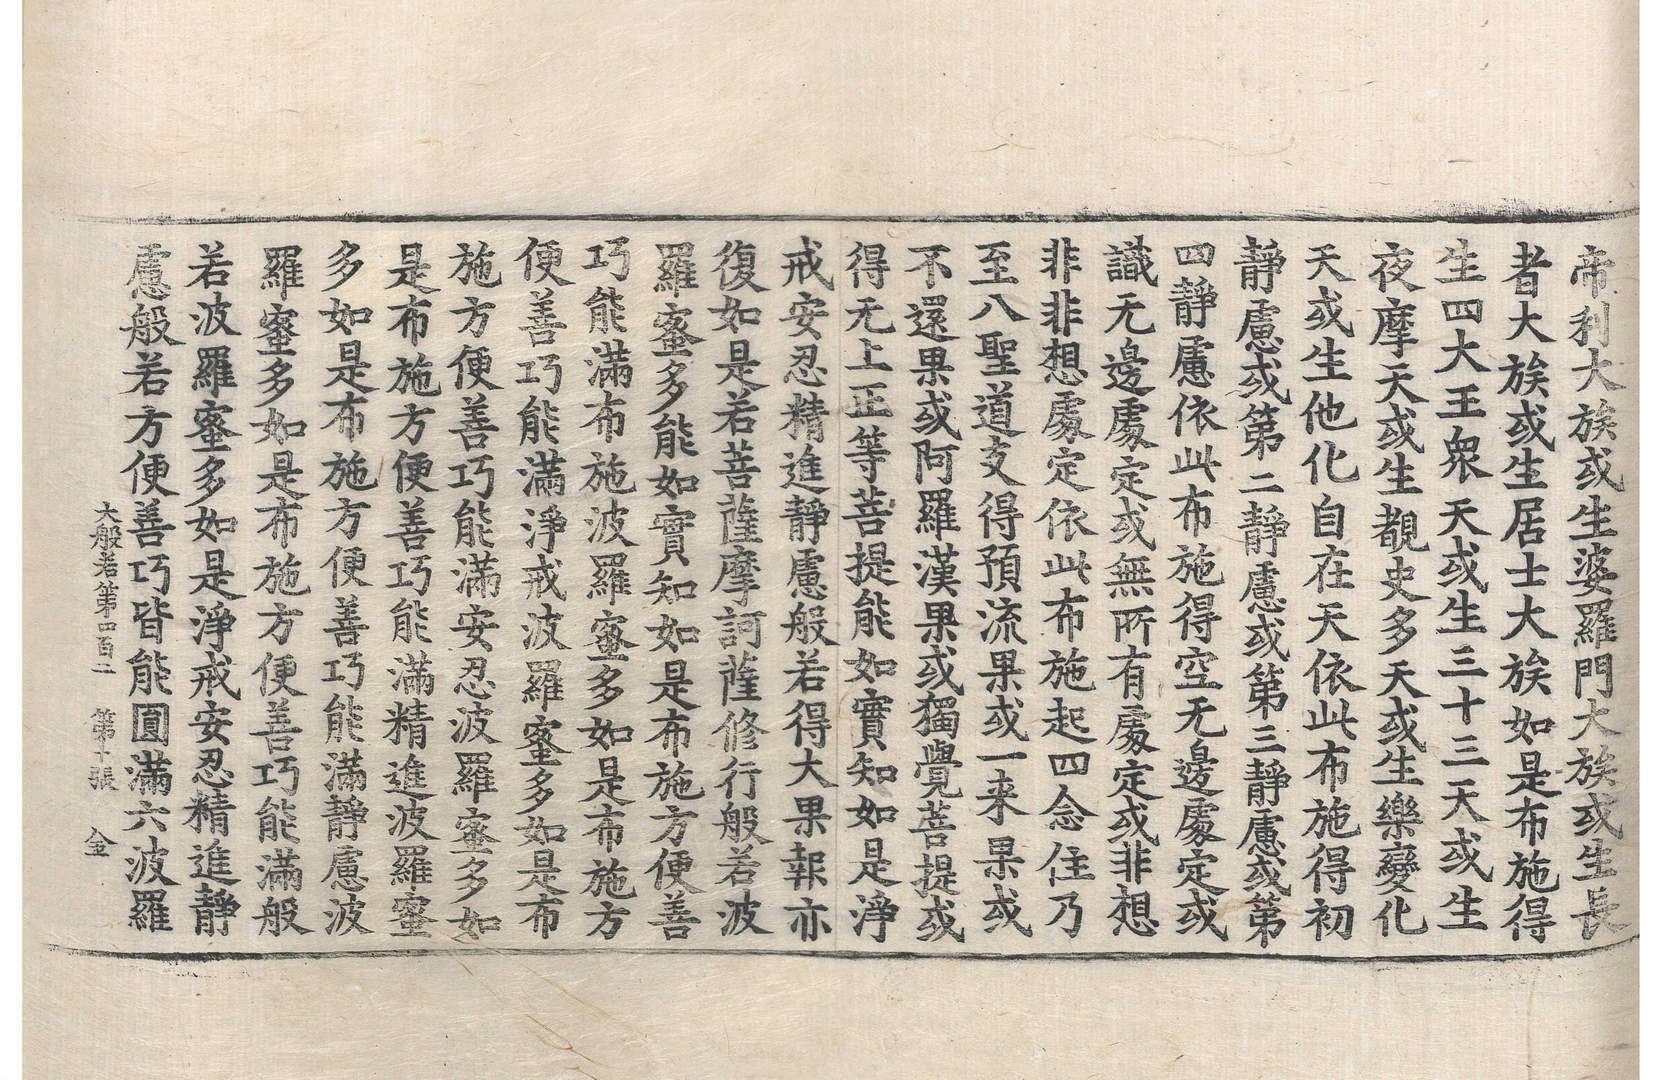 帝利大族或生婆羅門大族或生長
者大族或生居士大族如是布施得
生四大王衆天或生三十三天或生
夜摩天或生覩史多天或生樂變化
天或生他化自在天依此布施得初
靜慮或第二靜慮或第三靜慮或第
四靜慮依此布施得空无邊處定或
識无邊處定或無所有處定或非想
非非想處定依此布施起四念住乃
至八聖道支得預流果或一来果或
不還果或阿羅漢果或獨覺菩提或
得无上正等菩提能如實知如是淨
戒安忍精進靜慮般若得大果報亦
復如是若菩薩摩訶薩修行般若波
羅蜜多能如實知如是布施方便善
巧能滿布施波羅蜜多如是布施方
便善巧能滿淨戒波羅蜜多如是布
施方便善巧能滿安忍波羅蜜多如
是布施方便善巧能滿精進波羅蜜
多如是布施方便善巧能滿靜慮波
羅蜜多如是布施方便善巧能滿般
若波羅蜜多如是淨戒安忍精進靜
慮般若方便善巧皆能圓滿六波羅
大般若第四百二 第十張 金